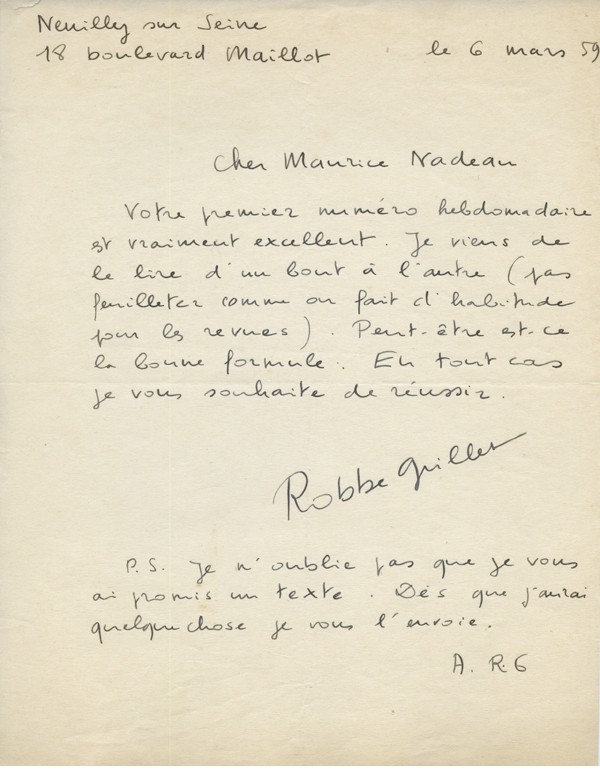 Neuilly sur Seine
18 boulevard Maillot le 6 mars 59
Cher Maurice Nadeau
Votre premier numéro hebdomadaire
est vraiment excellent. Je viens de
le lire d'un bout à l'autre (pas
feuilleter comme on fait d'habitude
pour les revues). Peut-être est-ce
la bonne formule. En tout cas
je vous souhaite de réussir.
Robbe Grillet
P.S. Je n'oublie pas que je vous
ai promis un texte. Dès que j'aurai
quelquechose je vous l'envoie.
A. R. G